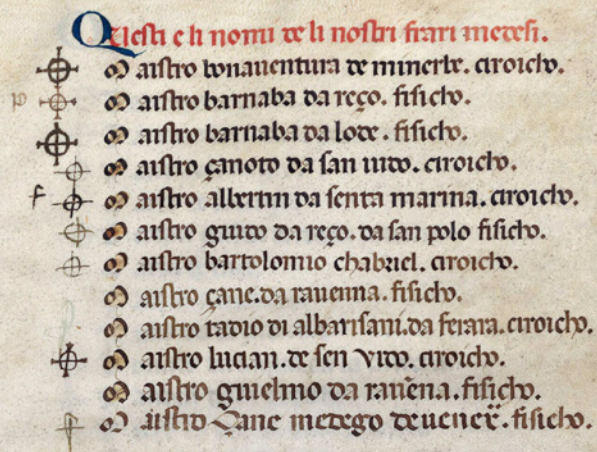 Questi e li nomi de li nostri frari medesi.
Maistro bonauentura de minerbe. ciroicho.
p Maistro barnaba da reço. fisicho.
Maistro barnaba da lode. fisicho.
Maistro çanoto da san uido. ciroicho.
f Maistro albertin da senta marina. ciroicho.
Maistro guido da reço. da san polo fisicho.
Maistro bartolomio chabriel. ciroicho.
Maistro çane. da rauenna. fisicho.
Maistro tadio di albarisani. da ferara. ciroicho.
Maistro lucian. de sen vido. ciroicho.
Maistro guielmo da rauena. fisicho.
Maistro Çane medego de . fisicho.